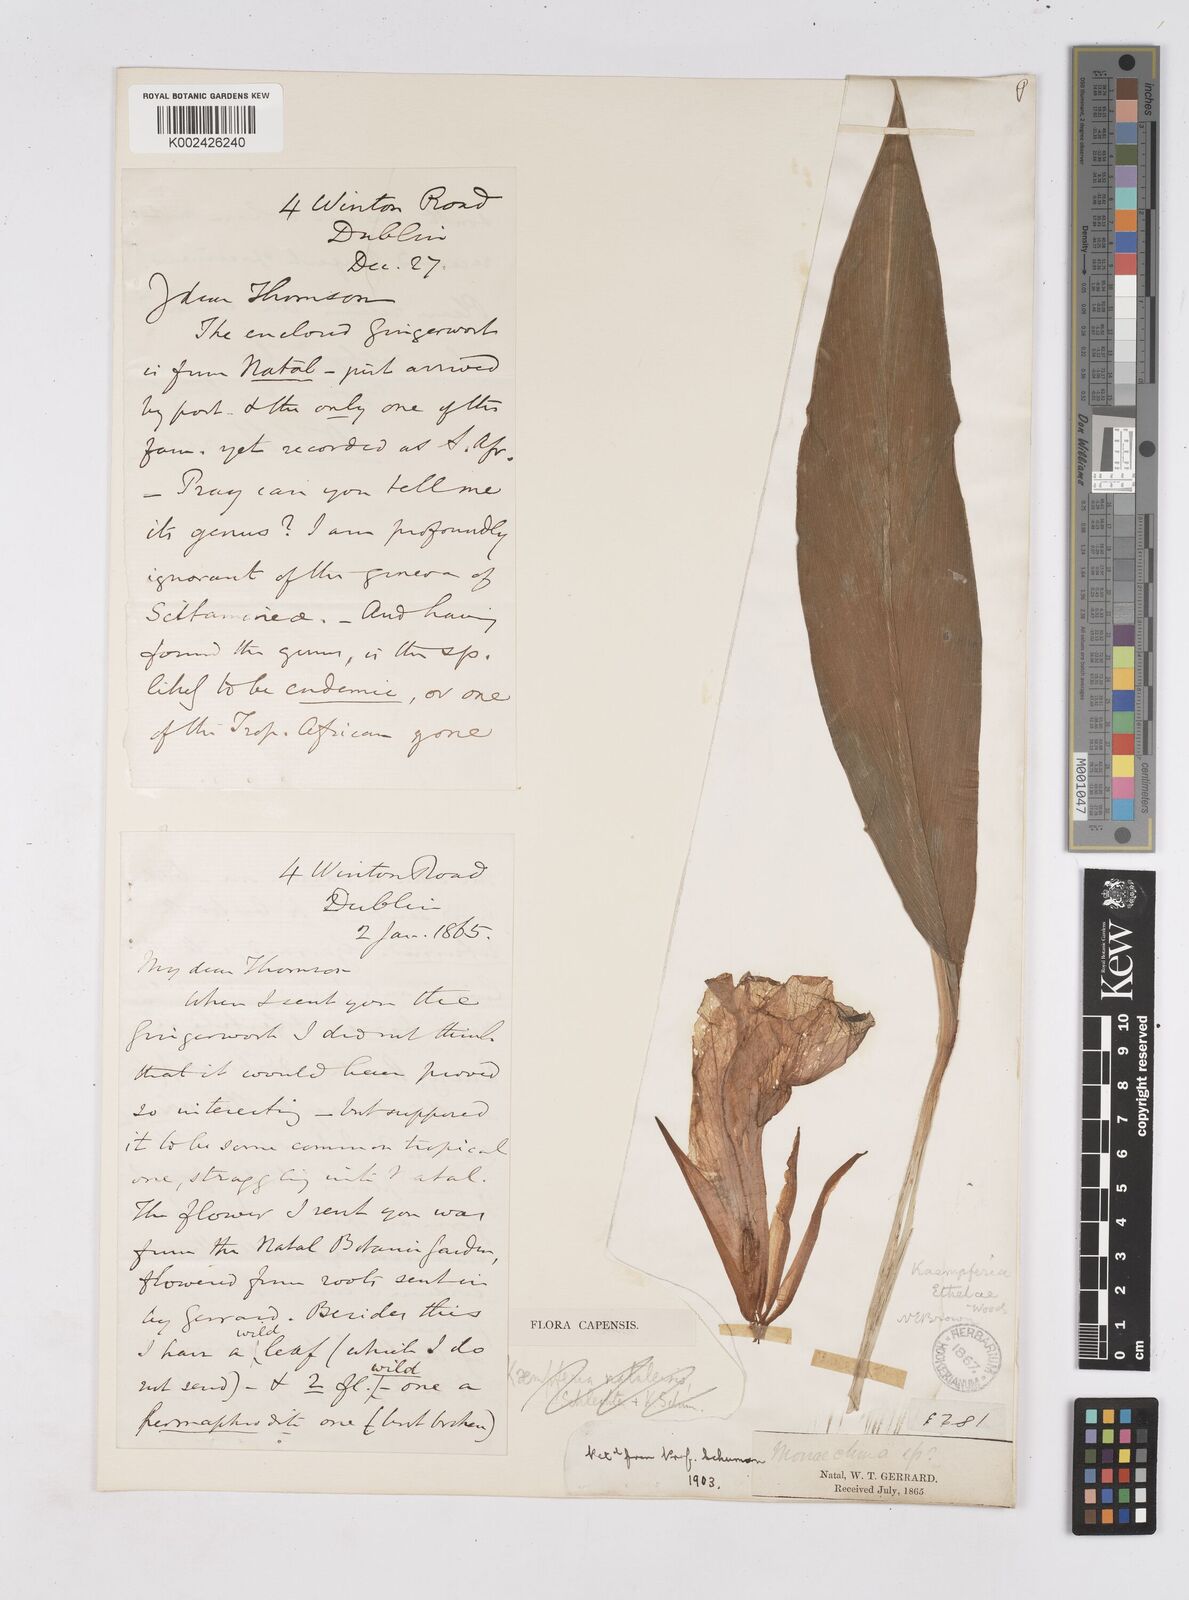 ROYAL BOTANIC GARDENS KEW
K002426240
4 Winton Road
Dublin
Dec. 27
My dear Thomson
The enclosed Gingerwort
is from Natal – just arrived
by post. & the only one of the
fam. yet recorded as S. Afr.
– Pray can you tell me
its genus? I am profoundly
ignorant of the genera of
Scitamineæ. – And having
found the genus, is the sp.
likely to be endemic, or one
of the Trop. African gone
4 Winton Road
Dublin
2 Jan. 1865.
My dear Thomson
When I sent you the
Gingerwort I did not think
that it would have proved
so interesting – but supposed
it to be some common tropical
one, straggling into Natal.
The flower I sent you was
from the Natal Botanic Garden,
flowered from roots sent in
by Gerrard. Besides this
I have a wild leaf (which I do
not send) – & 2 fl. wild – one a
hermaphrodite one (but broken)
FLORA CAPENSIS.
Kaempferia natalensis
Schlechter & K Schum.
Ret.d from Prof. Schumann
1903.
Kaempferia
Ethelae
Wood
N E Brown
HERBARIUM HOOKERIANUM
1867
Monae
sp?
Natal, W. T. GERRARD.
Received July, 1865
inches
centimeters
Don Williams
M001047
Royal Botanic Gardens
Kew
0 1 2 3 4 5 6 7 8 9 10
cm
copyright reserved